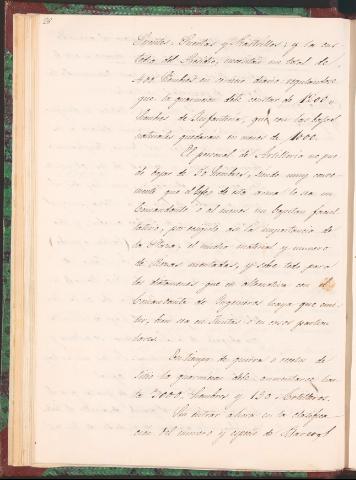 28
Puentes, Puertas y Rastrillos; y la cus
todia del Presidio, necesitan un total de
400 hombres en servicio diario, regulandose
que la guarnicion debe constar de 1200
hombres de Infanteria, que con las bajas
naturales quedaran en menos de 1000.
El personal de Artilleria no pue
de bajar de 70 hombres, siendo muy conve
niente que el Gefe de esta arma lo sea un
Comandante ó al menos un Capitan facul
tativo, por exigirlo asi la importancia de
la Plaza, el mucho material y numero
de Piezas montadas, y sobre todo para
los dictamenes que en alternativa con el
Comandante de Ingenieros haya que emi
tir, bien sea en Juntas ó en casos particu
lares.
En tiempo de guerra ó recelos de
sitio la guarnicion debe aumentarse has
ta 3000 hombres y 150 Artilleros.
Sin entrar ahora en la clasifica
cion del numero y especie de